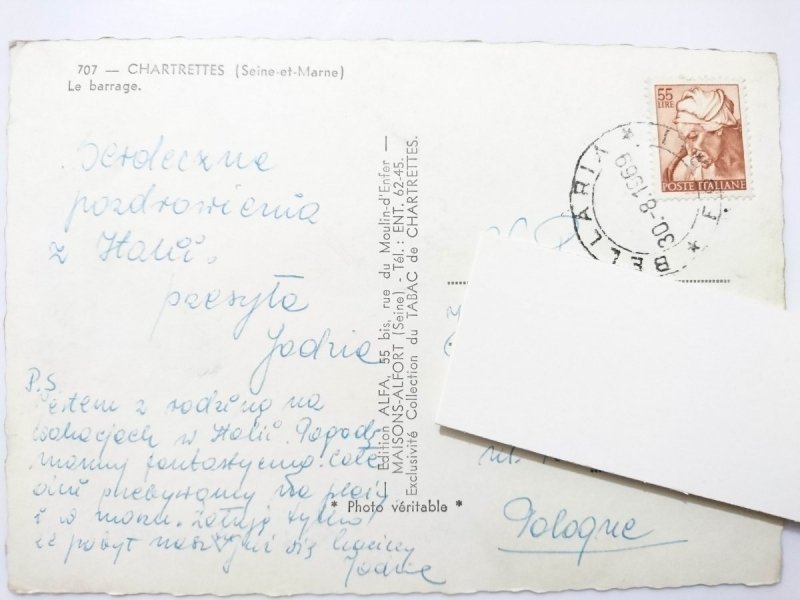 707 — CHARTRETTES (Seine-et-Marne)
Le barrage.
Serdeczne
pozdrowienia
z Italii.
przesyła
Jadzia
P.S.
Jestem z rodziną na
wakacjach w Italii. Pogodę
mamy fantastyczną. Całe
dnie przebywamy na plaży
i w morzu. Żałuję tylko
że pobyt nasz już się kończy
Jadzia
Edition ALFA, 55 bis, rue du Moulin-d'Enfer —
MAISONS-ALFORT (Seine) - Tél.: ENT. 62-45.
Exclusivité Collection du TABAC de CHARTRETTES.
* Photo véritable *
55
LIRE
POSTE ITALIANE
BELLARIA
30-8-1969
ul.
Pologne